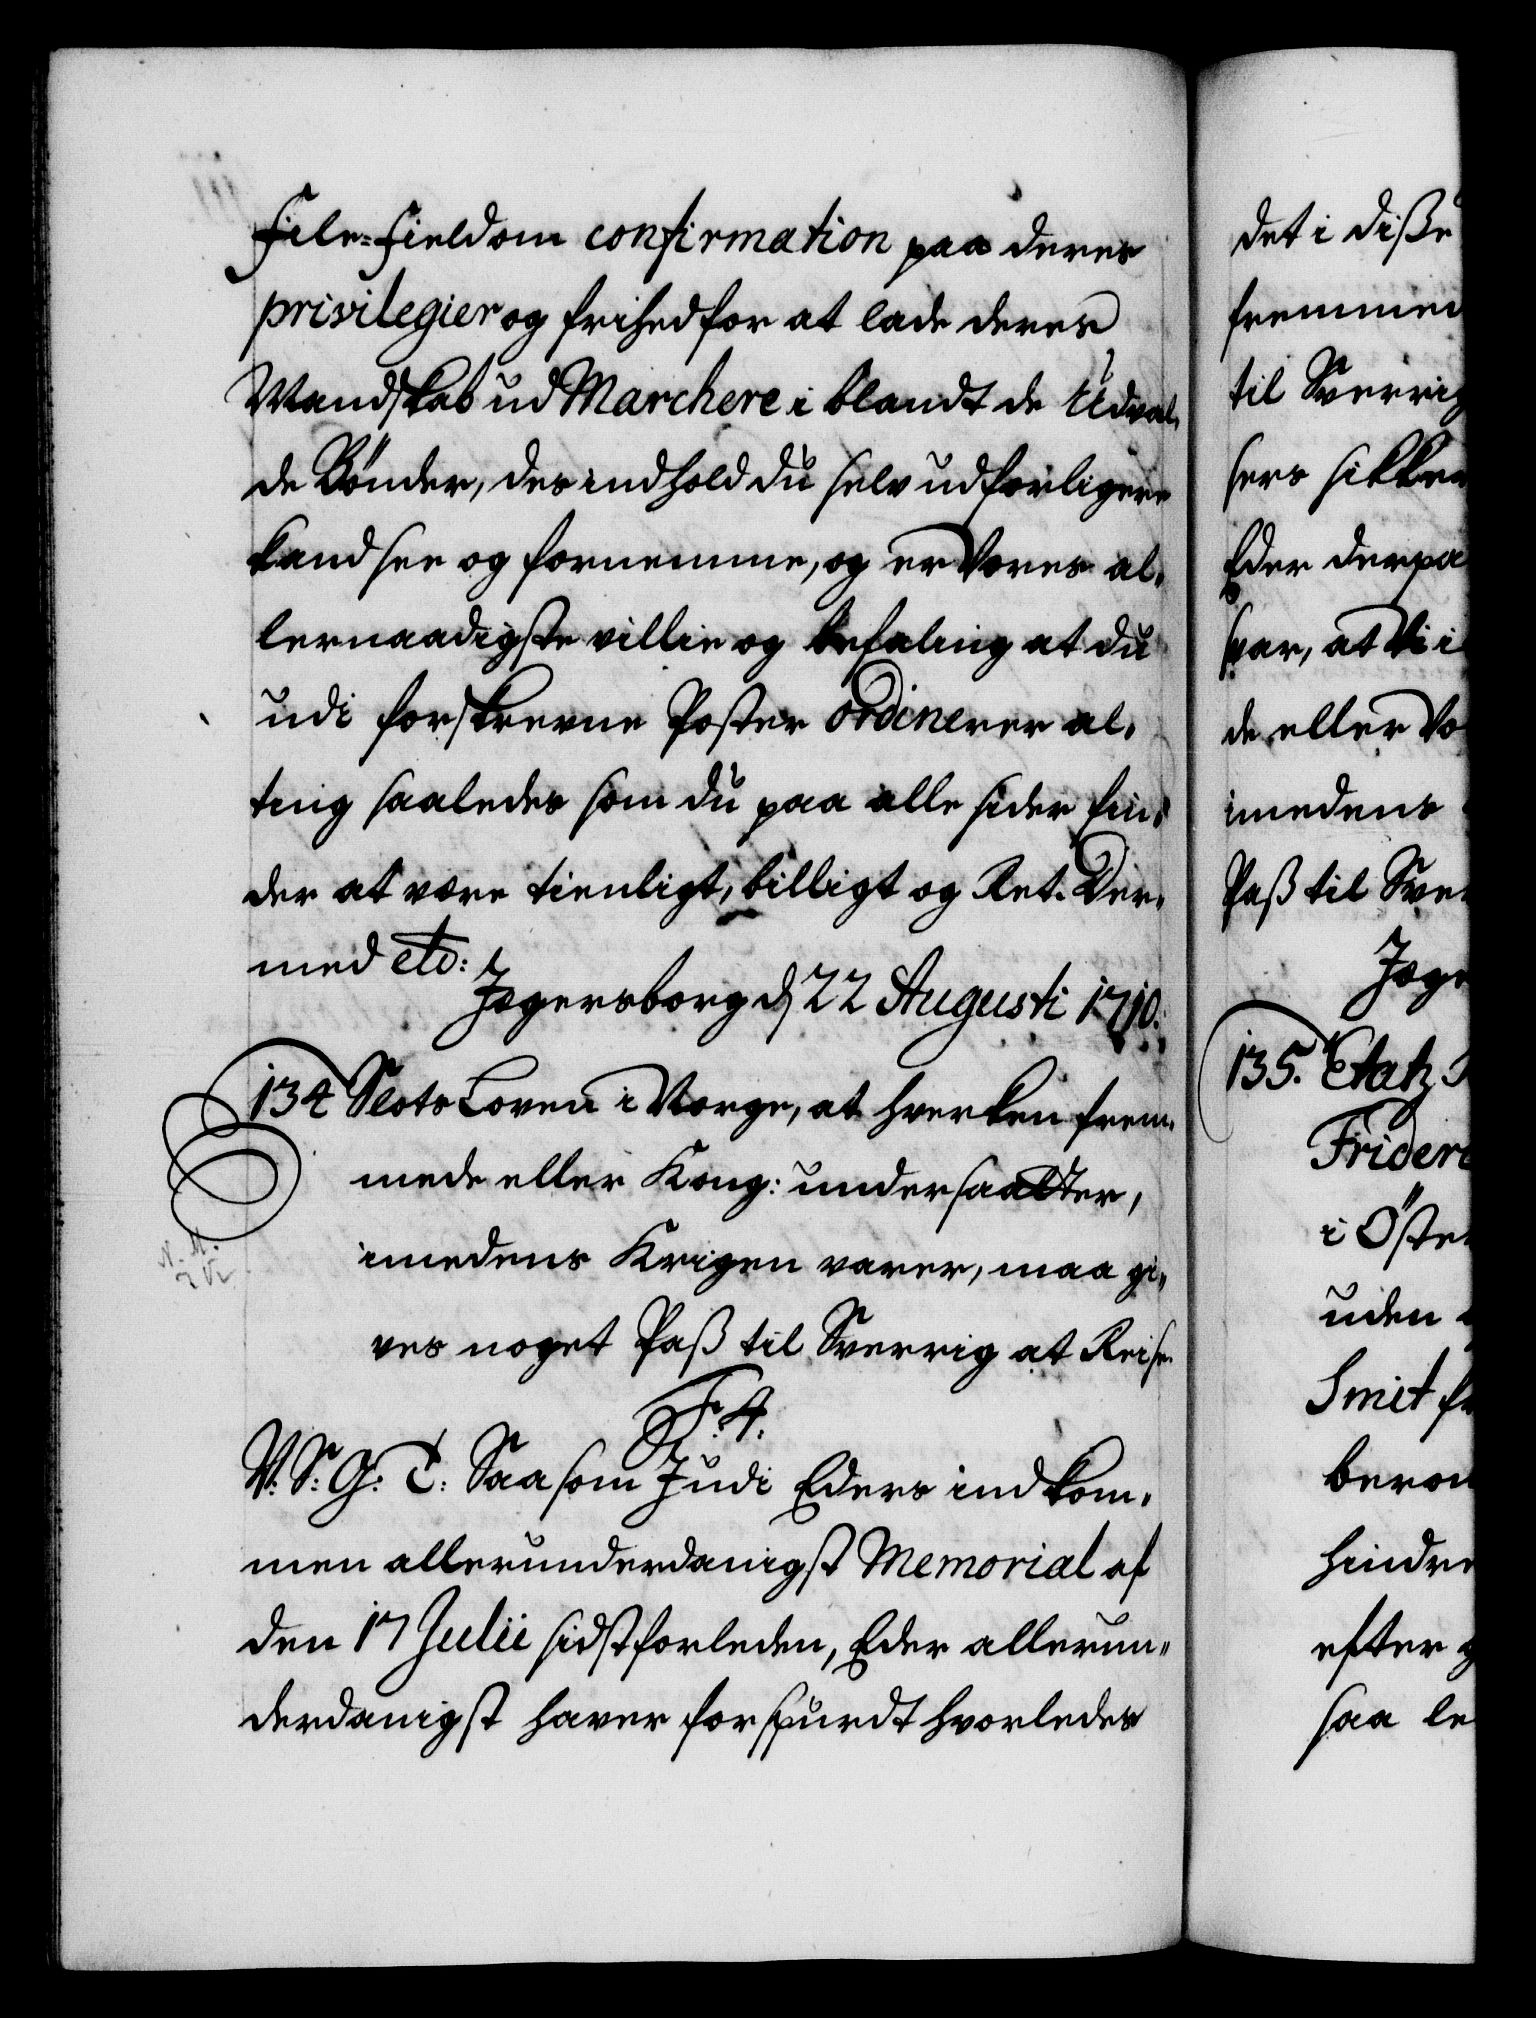 File-Field om confirmation paa deres
privilegier og frihed for at lade deres
Mandskab ud Marchere i blandt de Udval„
de Bønder, des indhold du selv udførligere
kand see og fornemme, og er Vores al„
lernaadigste villie og befaling at du
udi forskrevne Poster ordinerer al„
ting saaledes som du paa alle sider fin„
der at være tienligt, billigt og Ret. Der„
med etc:
Jægersborg d 22 Augusti 1710.
134 Slots Loven i Norge, at hverken frem„
mede eller Kong: undersaatter,
imedens Krigen varer, maa gi„
ves noget Pass til Sverrig at Reise
F. 4.
V. S. G. T: Saa som I udi Eders indkom„
men allerunderdanigst Memorial af
den 17 Julii sidstforleden, Eder allerun„
derdanigst haver forspurdt hvorledes
det i disse
fremmed
til Sverrig
sers sikker
Eder derpaa
svar, at Vi i
de eller Vo
imedens
Pass til Sve
Jæge
135. Etatz
Frideri
i Øste
uden
Smit
berom
hindre
efter
saa le